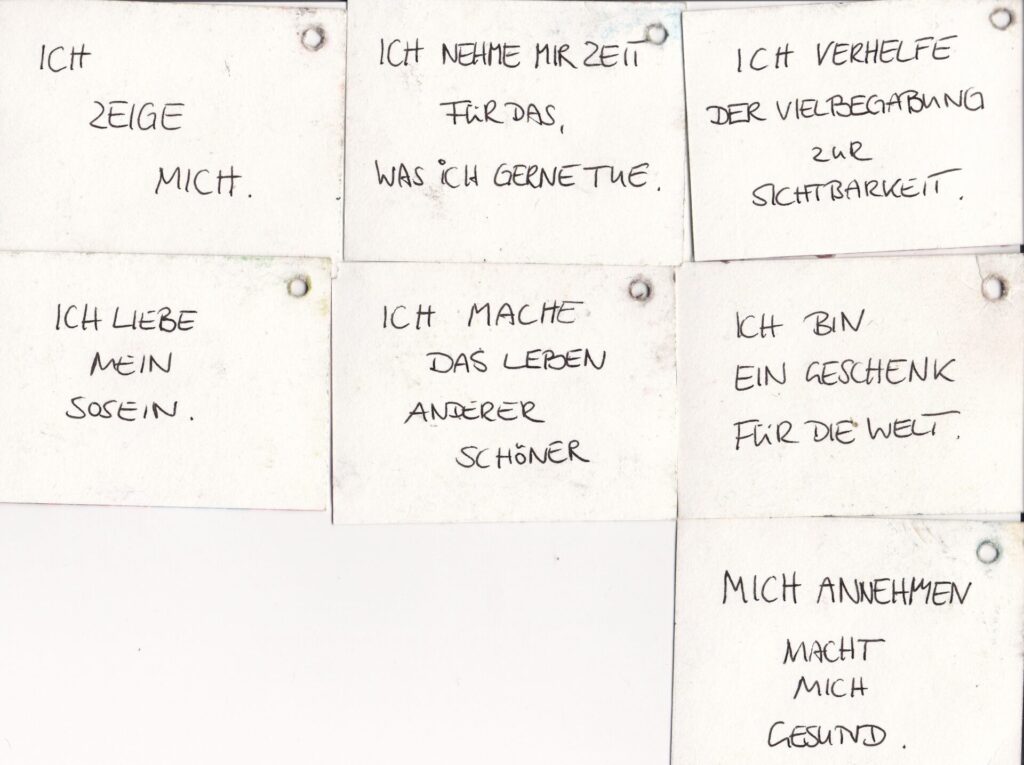 ICH
ZEIGE
MICH.
ICH NEHME MIR ZEIT
FÜR DAS,
WAS ICH GERNE TUE.
ICH VERHELFE
DER VIELBEGABUNG
ZUR
SICHTBARKEIT.
ICH LIEBE
MEIN
SOSEIN.
ICH MACHE
DAS LEBEN
ANDERER
SCHÖNER
ICH BIN
EIN GESCHENK
FÜR DIE WELT.
MICH ANNEHMEN
MACHT
MICH
GESUND.